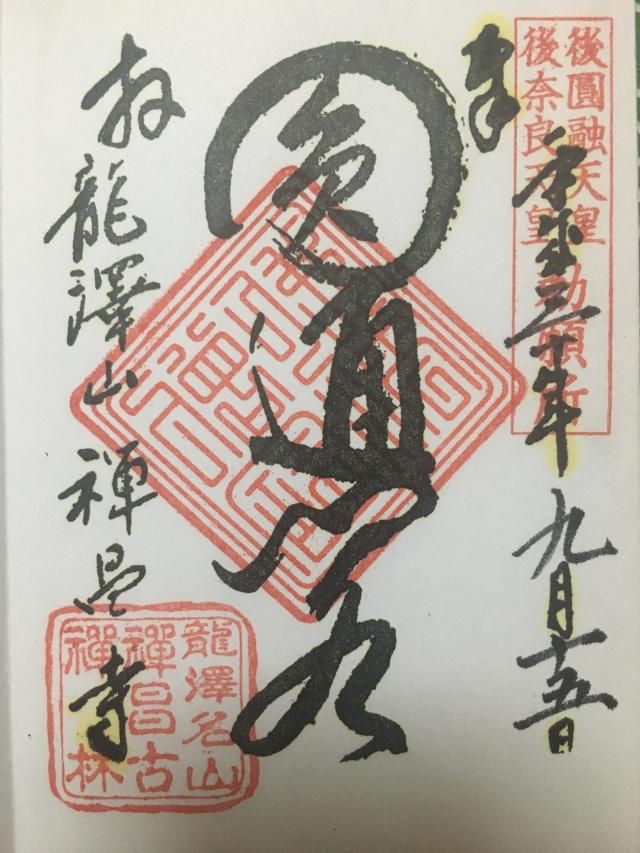 後圓融天皇
後奈良天皇 勅願所
奉
平成三十年九月十五日
圓通閣
於龍澤山 禅昌寺
龍澤名山
禪昌古
禪林